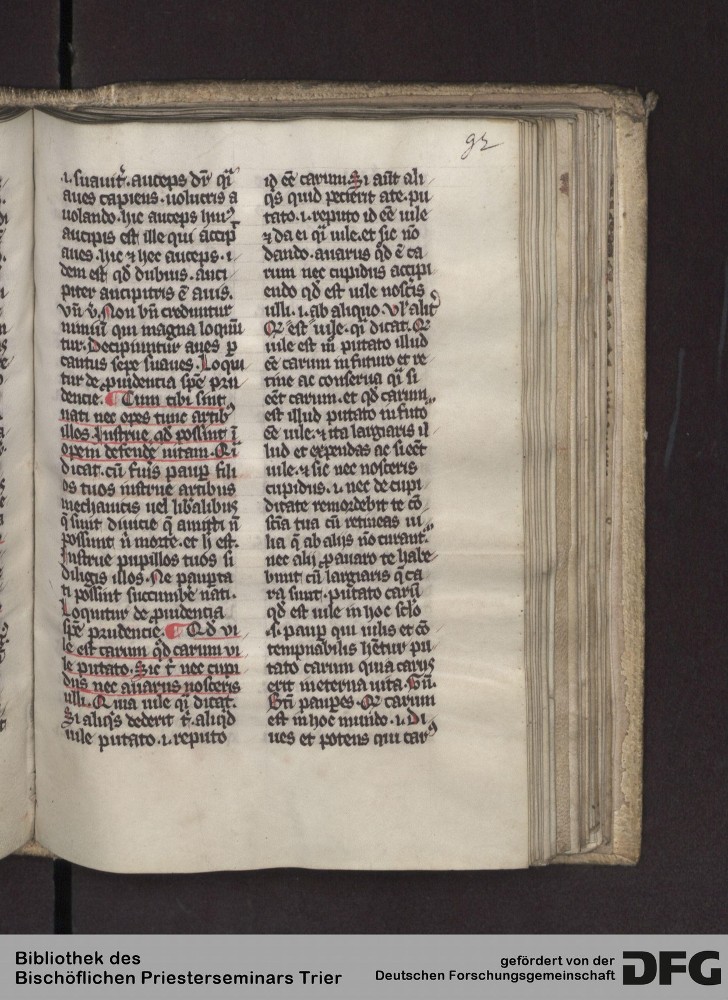 92
.i. suauit͛. auceps dr̄ qͥ
aues capiens. uolucris a
uolando. hic auceps huiꝰ
aucipis est ille qui accip̄
aues. hic ⁊ hec auceps. i
dem est qd̓ dubius. anci
piter ancipitris ē auis.
Vn̄ v̓. Non bn̄ creduntur
nimiū qui magna loqūn
tur. Decipiuntur aues ꝑ
cantus sepe suaues. Loqui
tur de prudencia spē pru
dencie. ¶ Cum tibi sint
nati nec opes tunc artibꝰ
illos. Instrue qd̓ possint ī
opem defende͛ uitam. Qͥ
dicat. cū fuis paup̲ fili
os tuos instrue artibus
mechanicis uel lib̓alibus
q̄ sunt diuicie q̄ amitti n̄
possunt ñ morte. et h̓ est.
Instrue pupillos tuos si
diligis illos. Ne pauperta
ti possint succumbe͛ nati.
Loquitur de prudencia
spē prudencie. ¶ Qd̓ vi
le est carum qd̓ carum vi
le putato. Sic t̓ nec cupi
dus nec auarus nosceris
ulli. Quia uile qͥ dicat.
Si aliqͥs dederit t̓. aliqd̓
uile putato .i. reputo
id eē̄ carum. Si aūt ali
qͥs quid pecierit a te. pu
tato .i. reputo id eē uile
⁊ da ei qͥ uile. et sic nō
dando. auarus qd̓ ē ca
rum nec cupidus accipi
endo qd̓ est uile noscīs
ulli .i. ab aliquo. Vl̓ alit͛
Qd̓ est uile. qͥ dicat. Qd̓
uile est m̄ putato illud
eē carum in futuro et re
tine ac conserua qͥ si
eēt carum. et qd̓ carum
est illud putato in futō
eē uile. ⁊ ita largiaris il
lud et expendas ac si eēt
uile. ⁊ sic nec nosceris
cupidus .i. nec de cupi
ditate remordebit te cō
scīa tua cū retineas ui
lia q̄ ab aliis nō curant͛.
nec alii p auaro te habe
bunt cū largiaris q̄ ca
ra sunt. putato carū
qd̓ est uile in hoc sclō
.s. paup̲ qui uilis et cō
tempnabilis hētur pu
tato carum quia carus
erit in eterna uita. Vn̄.
Btī paupes. Qd̓ carum
est in hoc mundo .i. Di
ues et potens qui carꝰ
Bibliothek des
Bischöflichen Priesterseminars Trier
gefördert von der
Deutschen Forschungsgemeinschaft
DFG